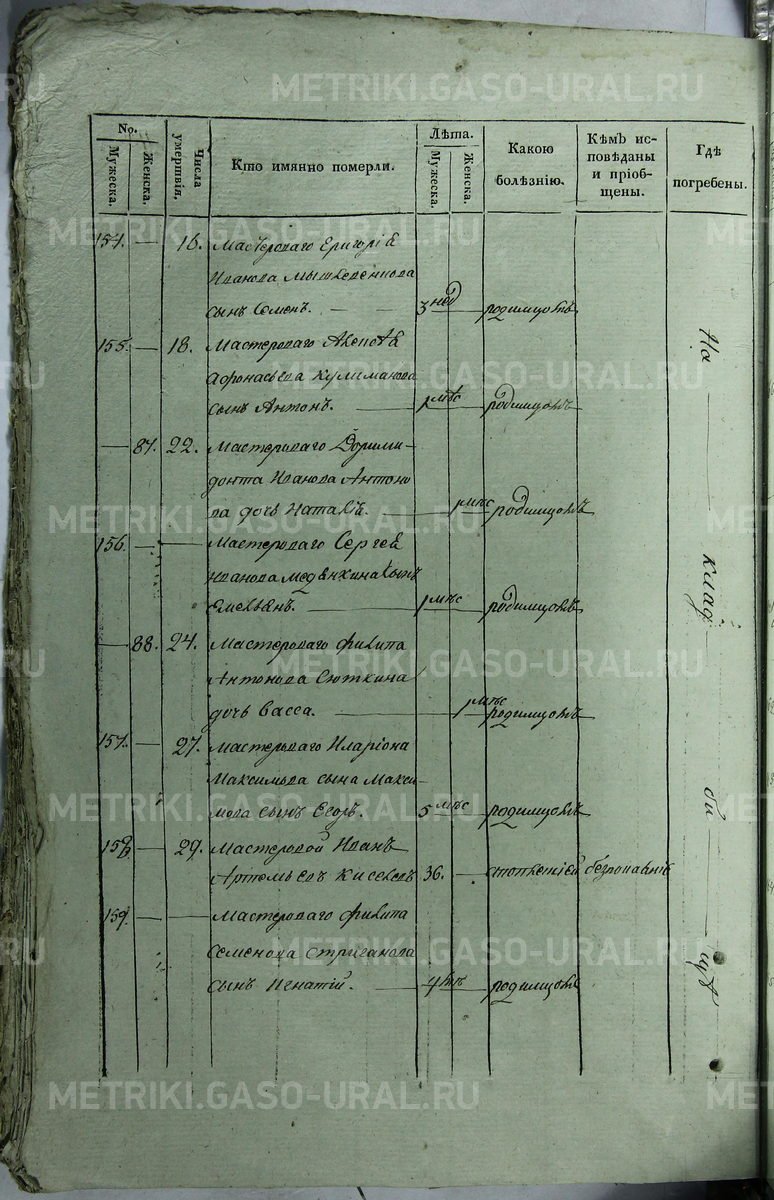 METRIKI.GASO-URAL.RU
No.
Мужеска.
Женска.
Числа умертвія.
Кто имянно померли.
Лѣта.
Мужеска.
Женска.
Какою болѣзнію.
Кѣмъ исповѣданы и пріобщены.
Гдѣ погребены.
154. — 16. Мастероваго Григоріа
Иванова
сынъ Семенъ. — 3 нед родимцомъ
155. — 18. Мастероваго
Афонасьева Кулиманова
сынъ Антонъ. — 1 мѣс родимцомъ
— 87. 22. Мастероваго Дорими-
донта Иванова Антоно
ва дочь — 1 мѣс родимцомъ
156. — — Мастероваго Сергея
Иванова сынъ
Емельянъ. — 1 мѣс родимцомъ
— 88. 24. Мастероваго Филипа
Антонова Сюткина
дочь Васса. — 1 мѣс родимцомъ
157. — 27. Мастероваго Иларіона
Максимова сына Макси-
мова сынъ Егоръ. — 5 мѣс родимцомъ
158. — 29. Мастеровой Иванъ
Артемьевъ Киселевъ 36. —
159. — — Мастероваго Филипа
Семенова Стриганова
сынъ Игнатій. — 4 родимцомъ
На клад би щѣ